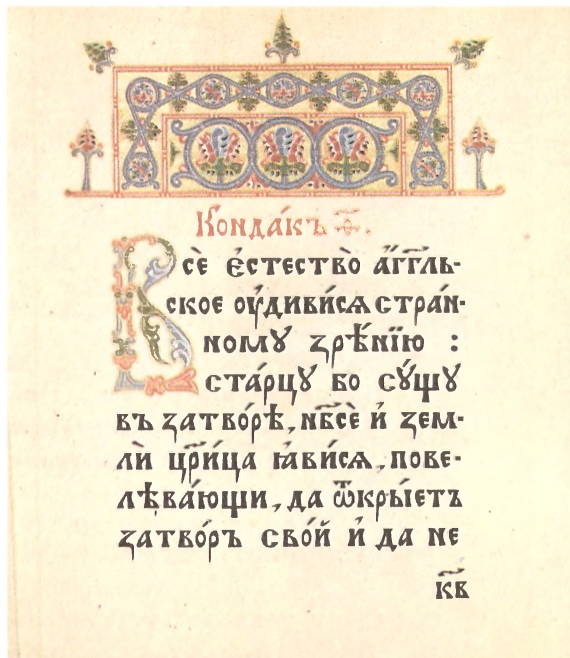 Конда́къ ѳ҃.
Всѐ є҆стество̀ а҆́гг҃ль-
ское ᲂу҆диви́сѧ стра́н-
номꙋ зрѣ́нїю :
ста́рцꙋ бо сꙋ́щꙋ
въ затво́рѣ, нб҃сѐ и҆ зем-
лѝ цр҃и́ца ꙗ҆ви́сѧ, пове-
лѣва́ющи, да ѿкры́етъ
затво́ръ сво́й и҆ да не
к҃в